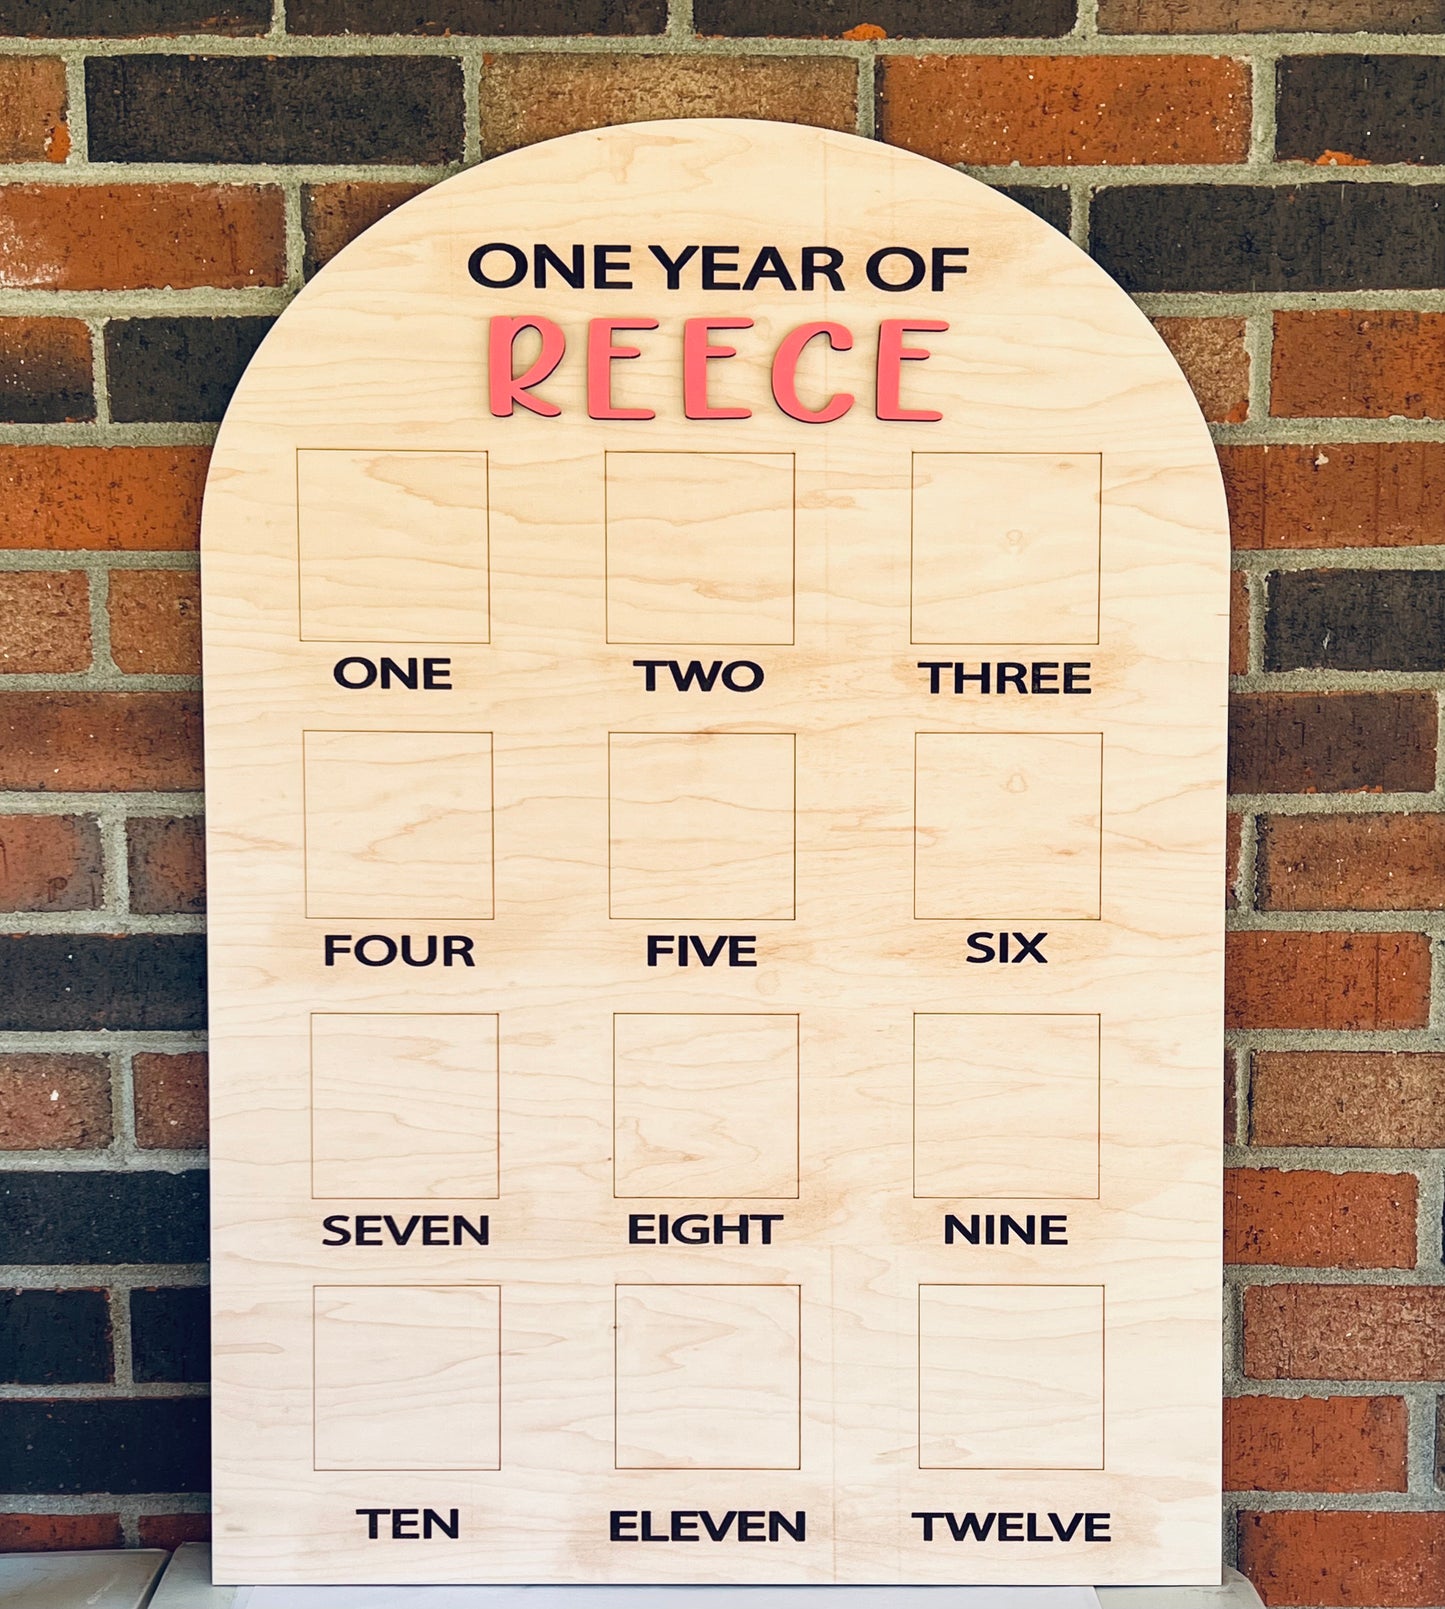 ONE YEAR OF
REECE
ONE TWO THREE
FOUR FIVE SIX
SEVEN EIGHT NINE
TEN ELEVEN TWELVE